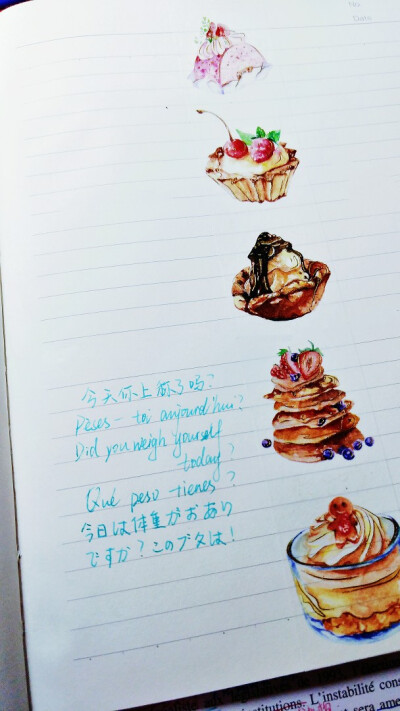 No.
Date
今天你上磅了吗?
Peses-toi aujourd'hui?
Did you weigh yourself
today?
Qué peso tienes?
今日は体重がおあり
ですか?このブタは!
institutions. L'instabilité cons
t sera ame